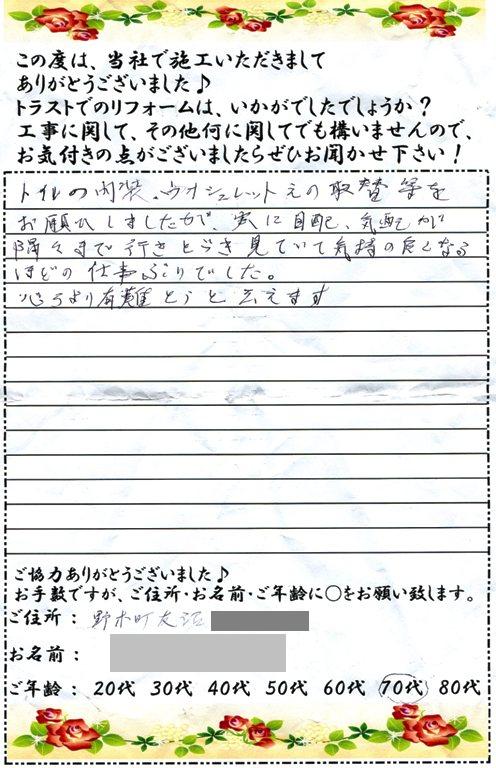 この度は、当社で施工いただきまして
ありがとうございました♪
トラストでのリフォームは、いかがでしたでしょうか？
工事に関して、その他何に関してでも構いませんので、
お気付きの点がございましたらぜひお聞かせ下さい！
トイレの内装、ウオシュレットえの取替等を
お願ひしましたが、実に目配、気配が
隅々まで行きとゞき見ていて気持の良くなる
ほどの仕事ぶりでした。
心より有難とうと云えます
ご協力ありがとうございました♪
お手数ですが、ご住所・お名前・ご年齢に○をお願い致します。
ご住所： 野木町友沼
お名前：
ご年齢： 20代 30代 40代 50代 60代 70代 80代